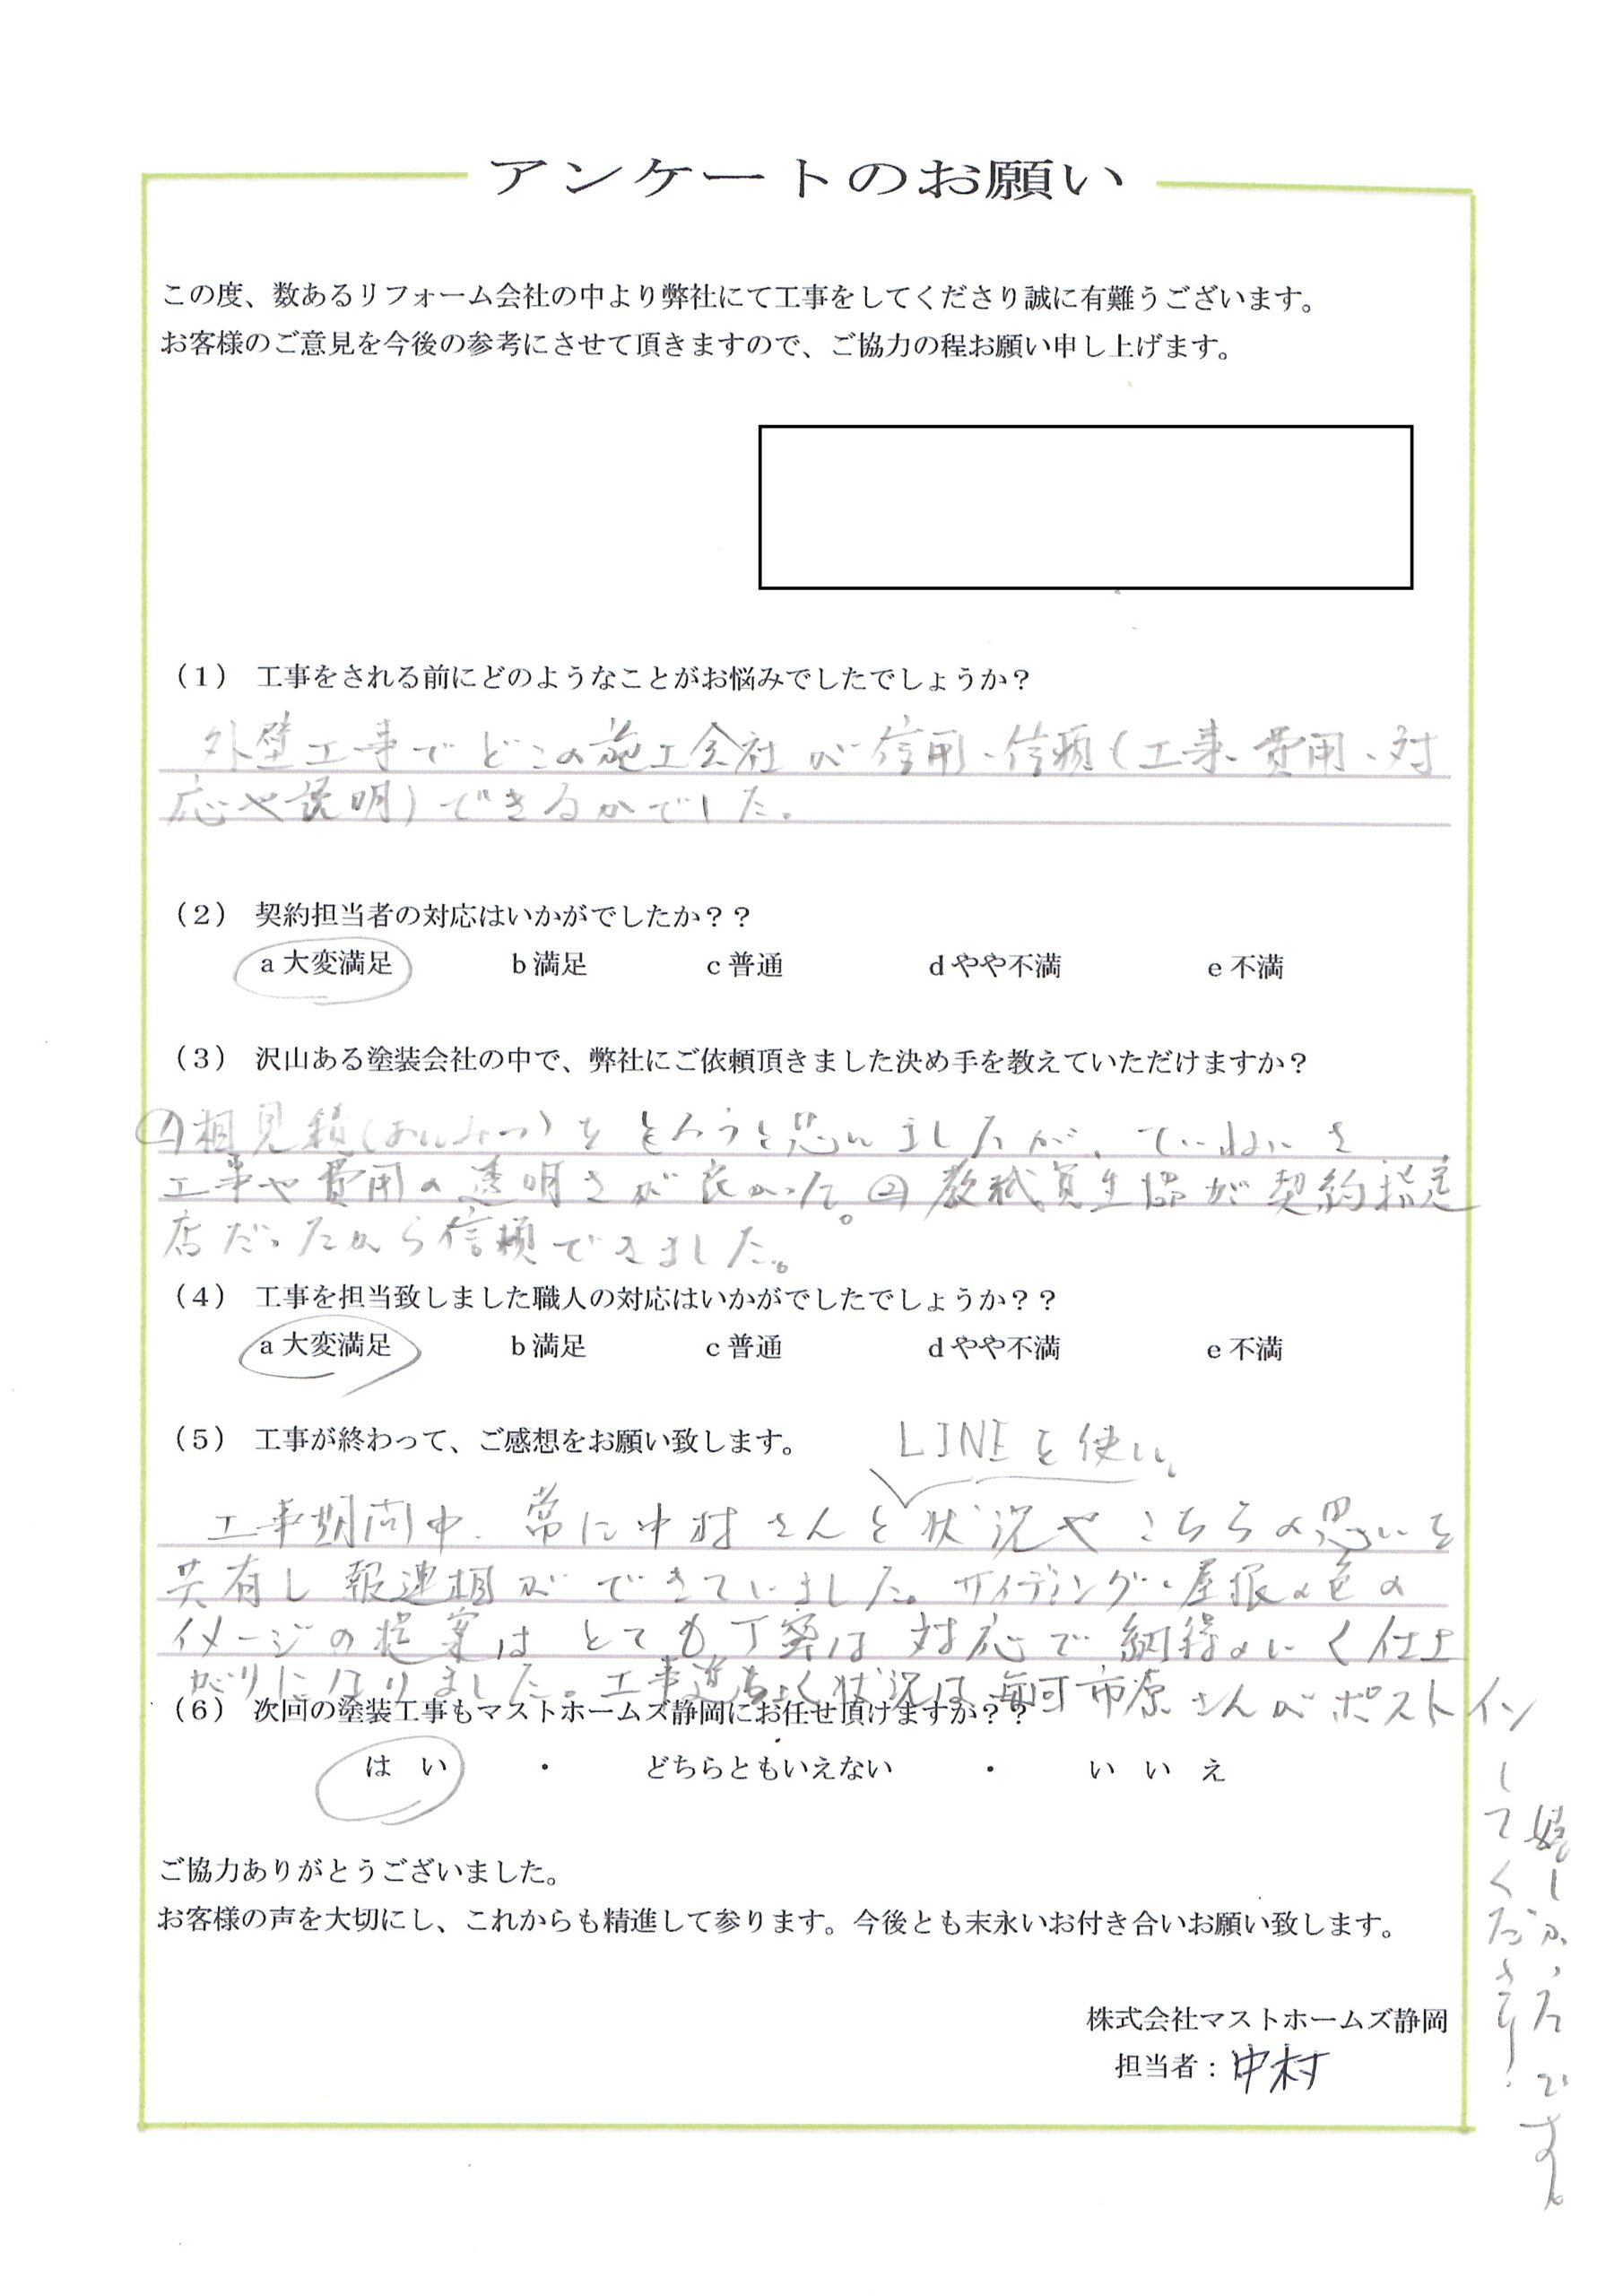 アンケートのお願い
この度、数あるリフォーム会社の中より弊社にて工事をしてくださり誠に有難うございます。
お客様のご意見を今後の参考にさせて頂きますので、ご協力の程お願い申し上げます。
（1）　工事をされる前にどのようなことがお悩みでしたでしょうか？
外壁工事でどこの施工会社が信用・信頼（工事、費用、対
応や説明）できるかでした。
（2）　契約担当者の対応はいかがでしたか？？
a 大変満足　b 満足　c 普通　d やや不満　e 不満
（3）　沢山ある塗装会社の中で、弊社にご依頼頂きました決め手を教えていただけますか？
①相見積（あいみつ）をとろうと思いましたが、ていねいさ
工事や費用の透明さが良かった。②教職員生協が契約指定
店だったから信頼できました。
（4）　工事を担当致しました職人の対応はいかがでしたでしょうか？？
a 大変満足　b 満足　c 普通　d やや不満　e 不満
（5）　工事が終わって、ご感想をお願い致します。
LINEを使い、
工事期間中、常に中村さんと状況やこちらの思いを
共有し報連相ができていました。サイディング・屋根の色の
イメージの提案はとても丁寧な対応で納得のいく仕上
がりになりました。工事進ちょく状況は毎回市原さんがポストイン
（6）　次回の塗装工事もマストホームズ静岡にお任せ頂けますか？？
はい　・　どちらともいえない　・　いいえ
してくださり、
嬉しかったです。
ご協力ありがとうございました。
お客様の声を大切にし、これからも精進して参ります。今後とも末永いお付き合いお願い致します。
株式会社マストホームズ静岡
担当者：中村